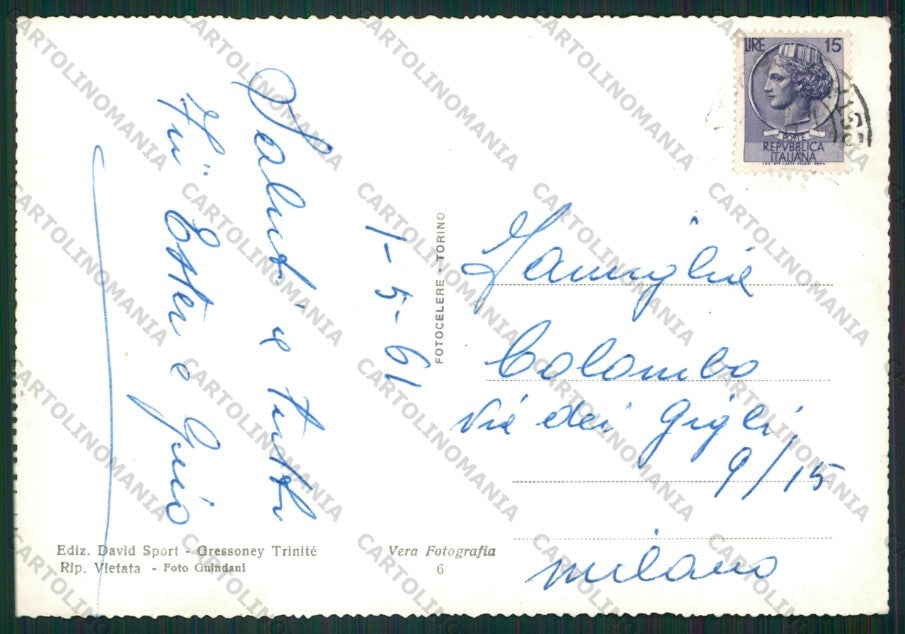 Saluti a tutti
Zii Ester e Gino
1-5-61
FOTOCELERE - TORINO
LIRE 15
POSTE
REPVBBLICA
ITALIANA
Famiglia
Colombo
Via dei Gigli
9/15
Milano
Ediz. David Sport - Gressoney Trinité
Rip. Vietata - Foto Guindani
Vera Fotografia
6
CARTOLINOMANIA